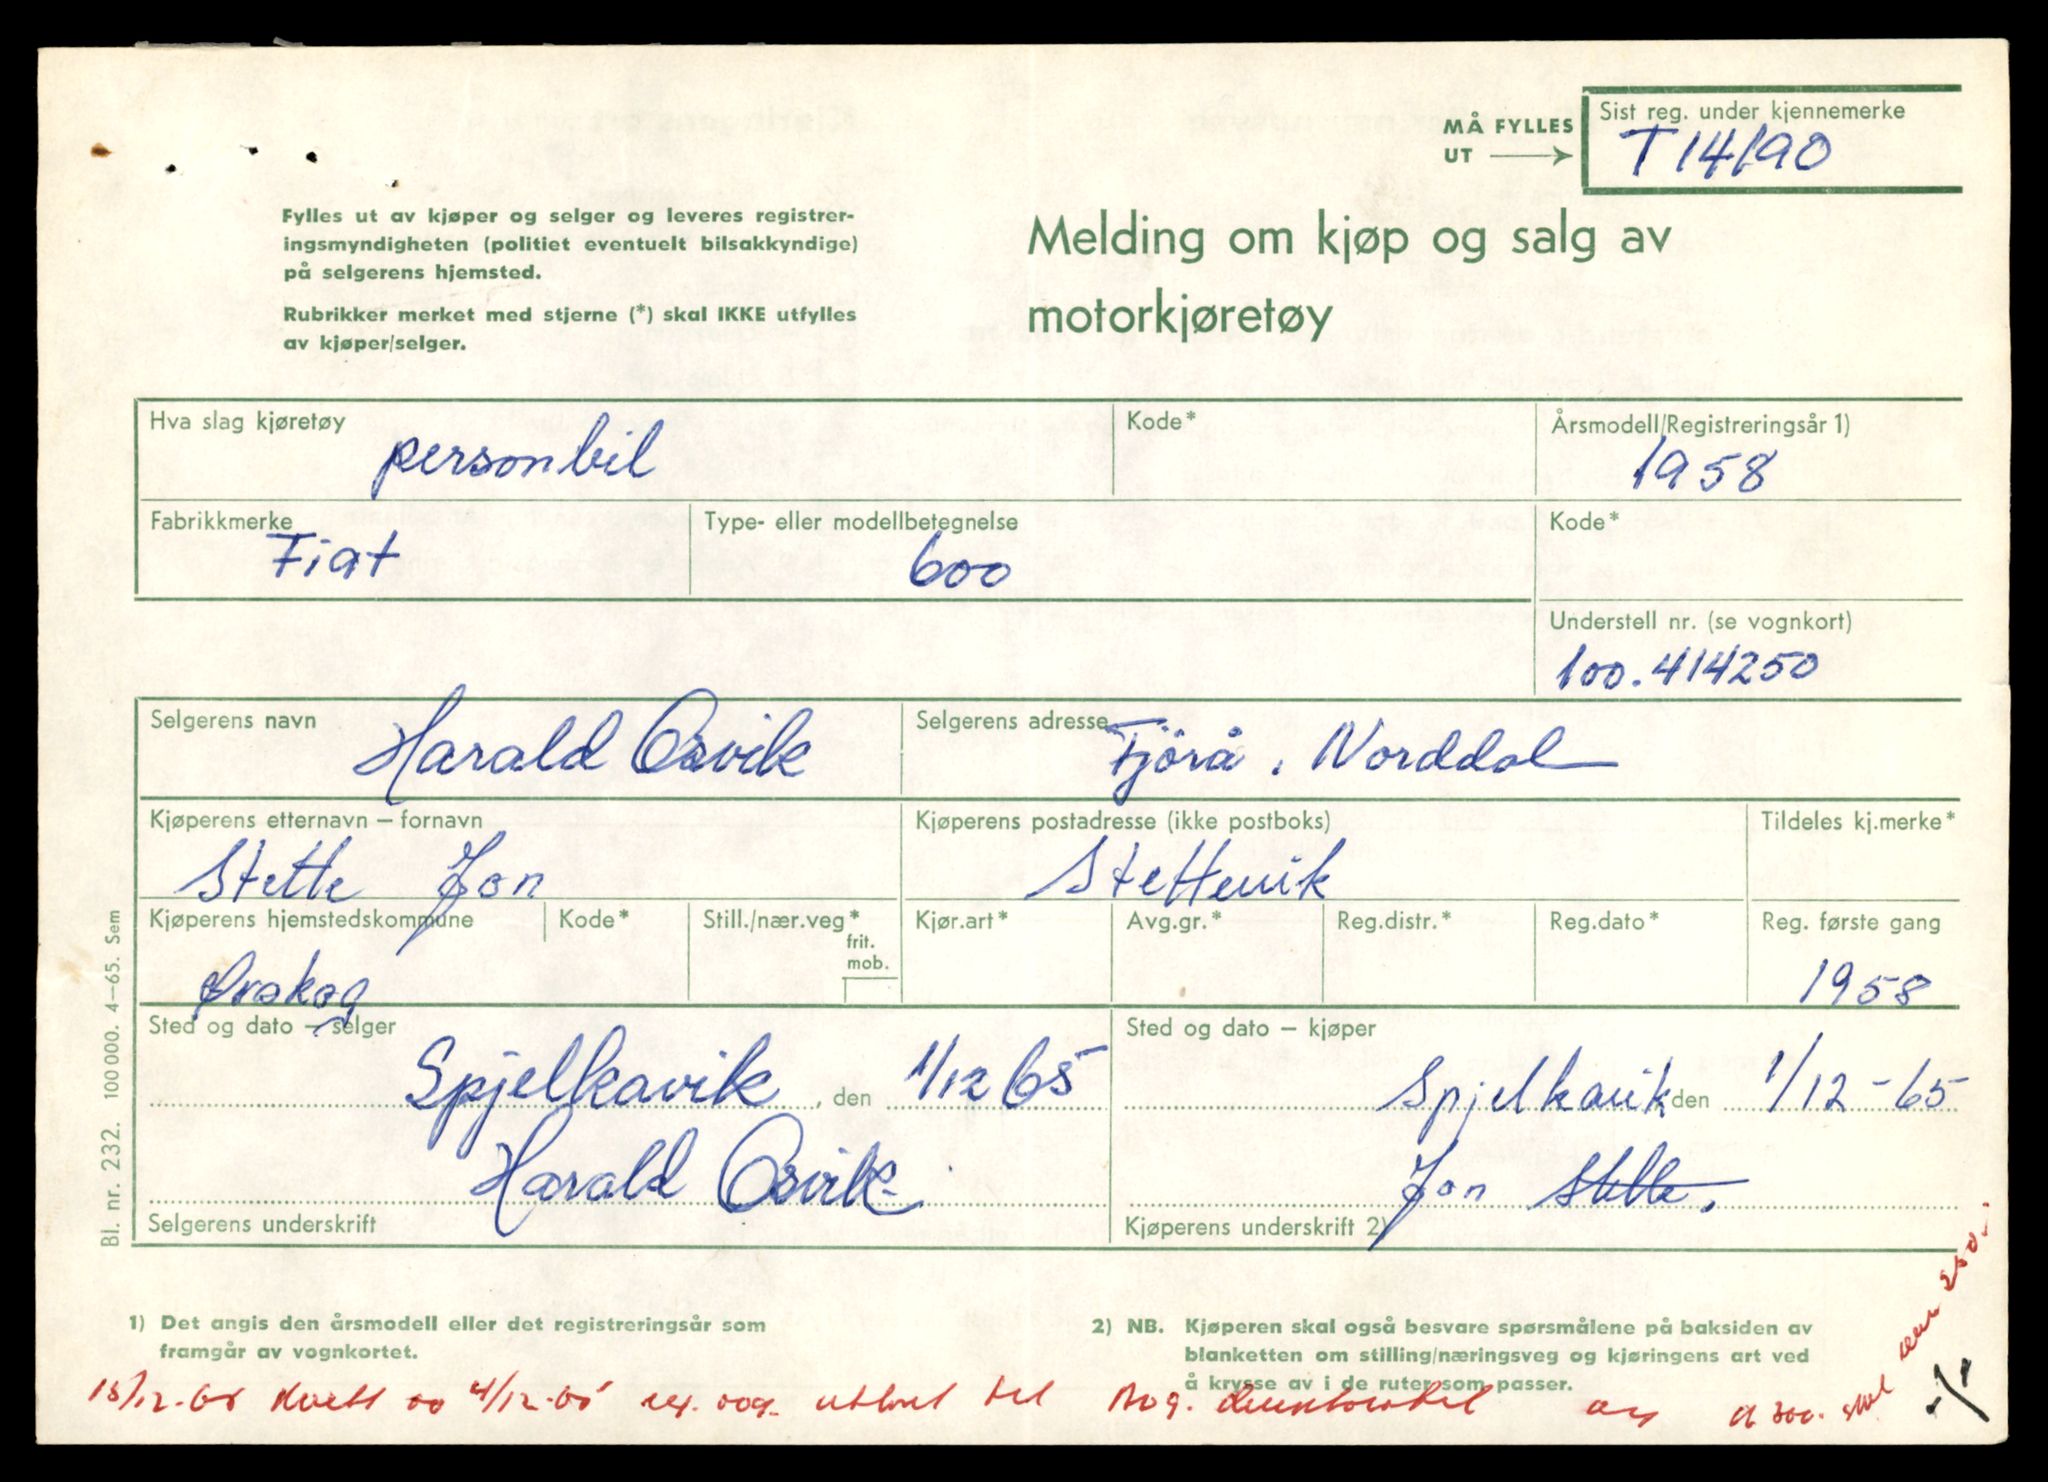 MÅ FYLLES
UT
Sist reg. under kjennemerke
T 14190
Fylles ut av kjøper og selger og leveres registrer-
ingsmyndigheten (politiet eventuelt bilsakkyndige)
på selgerens hjemsted.
Rubrikker merket med stjerne (*) skal IKKE utfylles
av kjøper/selger.
Melding om kjøp og salg av
motorkjøretøy
Hva slag kjøretøy
personbil
Kode*
Årsmodell/Registreringsår 1)
1958
Fabrikkmerke
Fiat
Type- eller modellbetegnelse
600
Kode*
Understell nr. (se vognkort)
100.414250
Selgerens navn
Harald Osvik
Selgerens adresse
Fjörå, Norddal
Kjøperens etternavn – fornavn
Stette Jon
Kjøperens postadresse (ikke postboks)
Stettevik
Tildeles kj.merke*
Kjøperens hjemstedskommune
Ørskog
Kode*
Still./nær.veg*
frit.
mob.
Kjør.art*
Avg.gr.*
Reg.distr.*
Reg.dato*
Reg. første gang
1958
Sted og dato – selger
Spjelkavik, den 1/12 65
Sted og dato – kjøper
Spjelkavik den 1/12-65
Harald Osvik
Selgerens underskrift
Jon Stette.
Kjøperens underskrift 2)
Bl. nr. 232. 100 000. 4–65. Sem
1) Det angis den årsmodell eller det registreringsår som
framgår av vognkortet.
2) NB. Kjøperen skal også besvare spørsmålene på baksiden av
blanketten om stilling/næringsveg og kjøringens art ved
å krysse av i de ruter som passer.
4/12-65 utlevert til